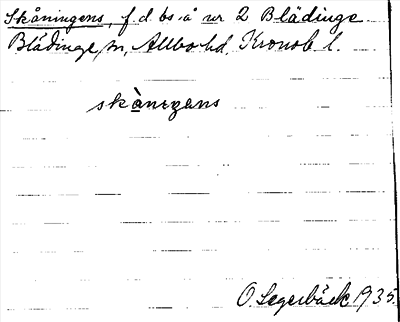 Skåningens, f.d. bs å nr 2 Blädinge
Blädinge sn, Allbo hd, Kronob. l.
skån𝑖ŋens
O. Segerbäck 1935.